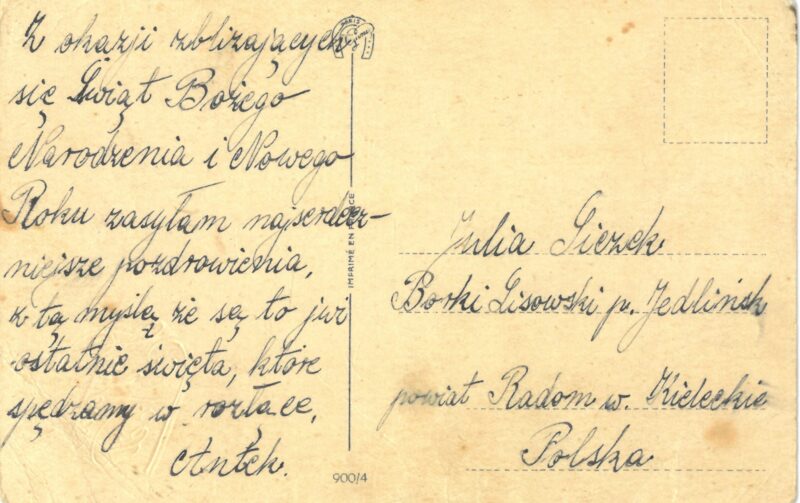 Z okazji zbliżających
się Świąt Bożego
Narodzenia i Nowego
Roku zasyłam najserdecz-
niejsze pozdrowienia,
z tą myślą że są to już
ostatnie święta, które
spędzamy w rozłące,
Antek.
PARIS
IMPRIMÉ EN FRANCE
900/4
Julia Siczek
Borki Lisowski p. Jedlińsk
powiat Radom w. Kieleckie
Polska